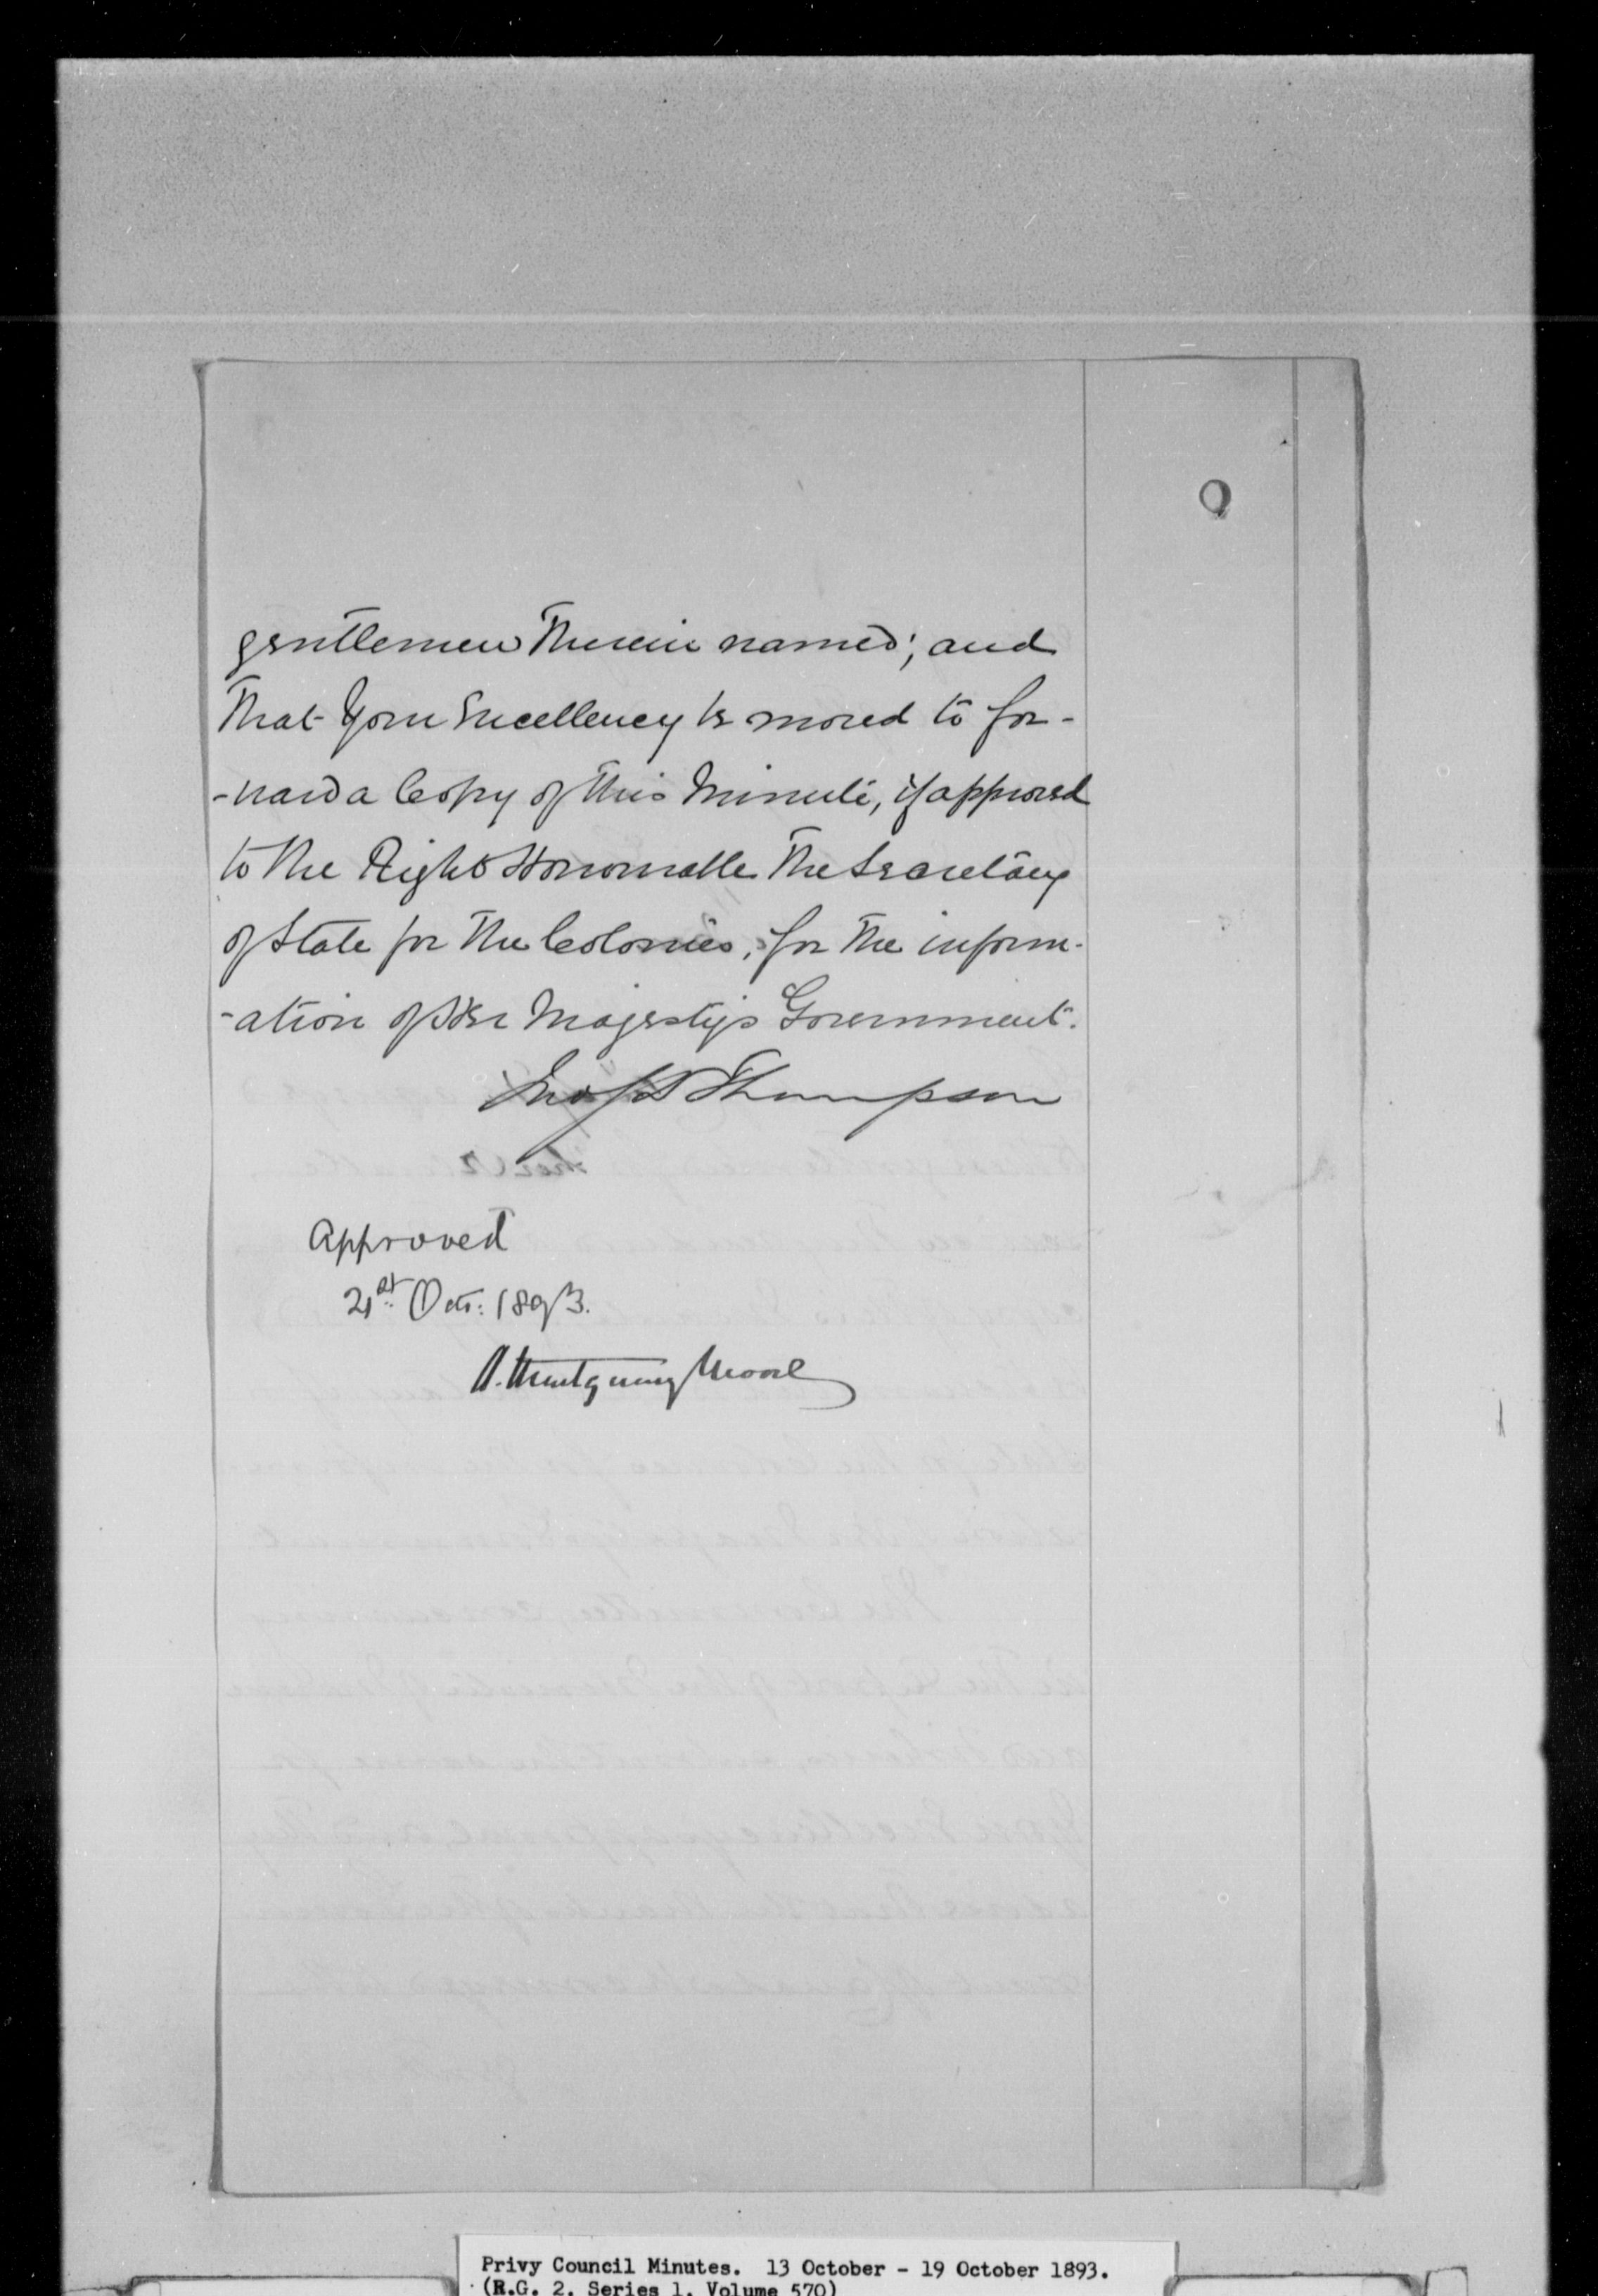 gentlemen therein named; and
that Your Excellency be moved to for-
-ward a Copy of this Minute, if approved
to the Right Honourable the Secretary
of State for the Colonies, for the inform-
-ation of Her Majesty's Government.
Jno S D Thompson
Approved
21st Oct: 1893.
A. Montgomery Moore
Privy Council Minutes. 13 October - 19 October 1893.
(R.G. 2, Series 1, Volume 570)